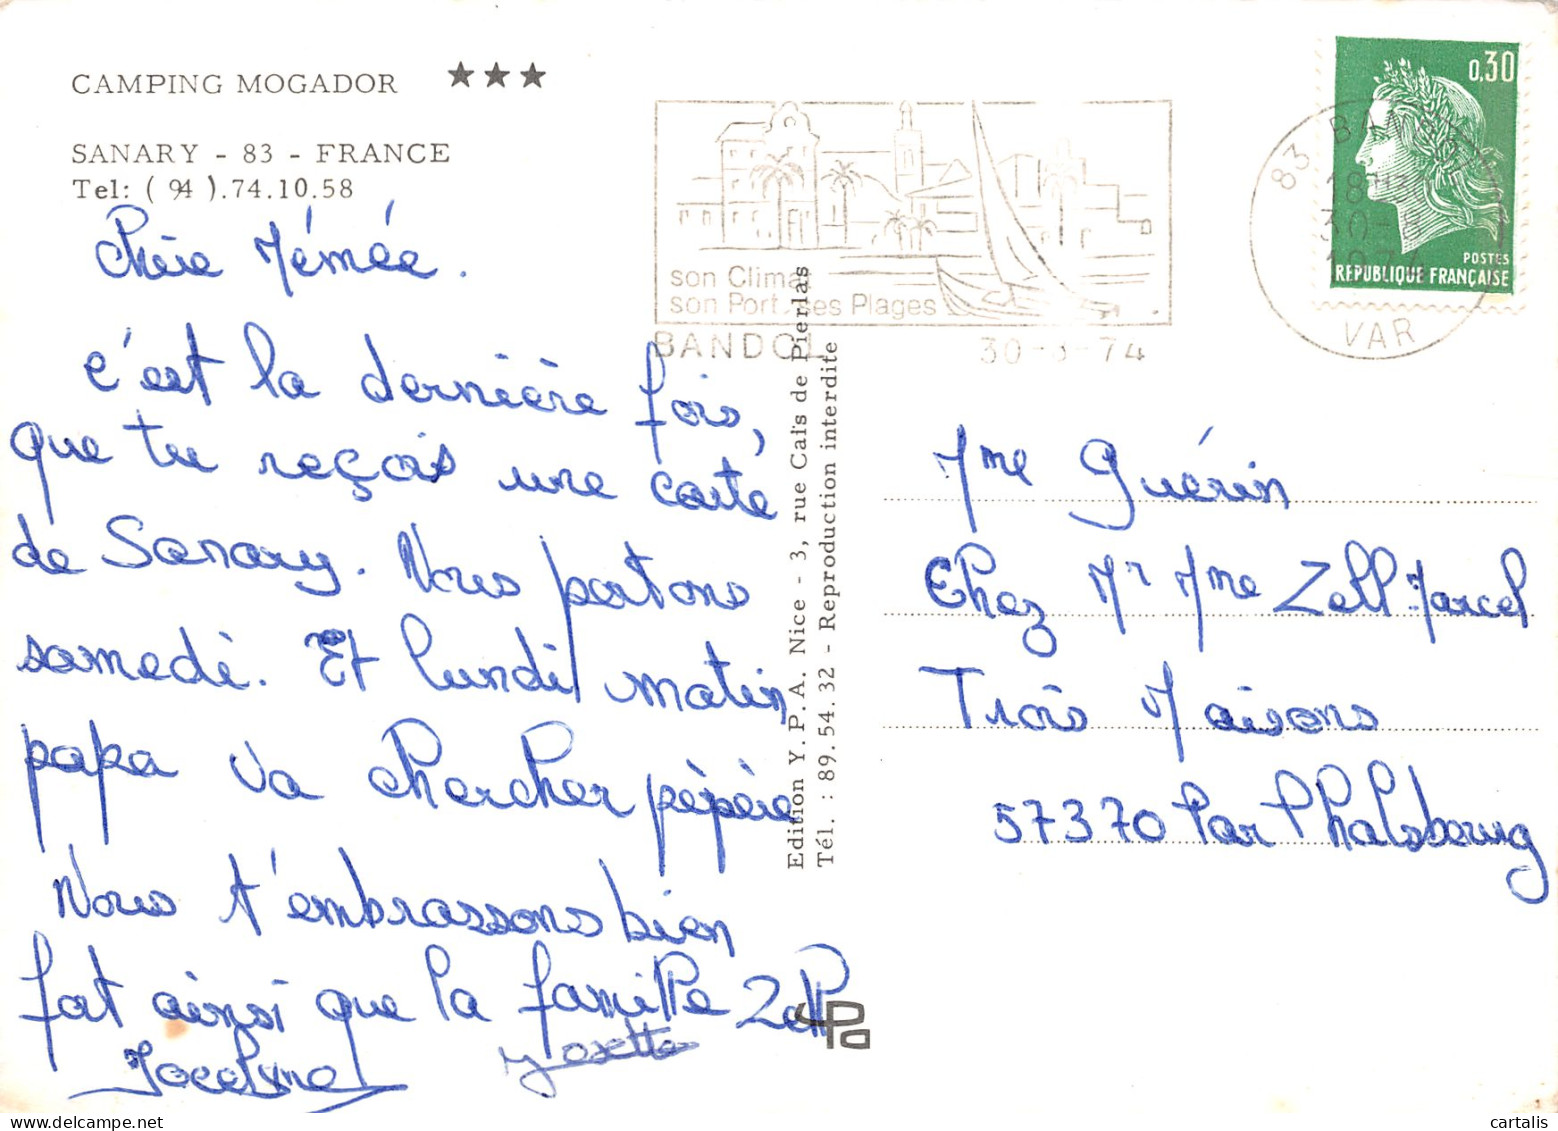 CAMPING MOGADOR ★★★
SANARY - 83 - FRANCE
Tel: ( 94 ).74.10.58
Chère Mémée.
c'est la dernière fois,
que tu reçois une carte
de Sanary. Nous partons
samedi. Et lundi matin
papa va chercher pépère
Nous t'embrassons bien
fort ainsi que la famille Zell
Jocelyne
Josette
son Climat
son Port ses Plages
BANDOL 30-8-74
83 BANDOL
18H
30-
1974
VAR
0,30
POSTES
REPUBLIQUE FRANÇAISE
Edition Y. P. A. Nice - 3, rue Cais de Pierlas
Tél. : 89.54.32 - Reproduction interdite
YPA
Mme Guérin
Chez Mr Mme Zell Marcel
Trois Maisons
57370 Par Phalsbourg
cartalis